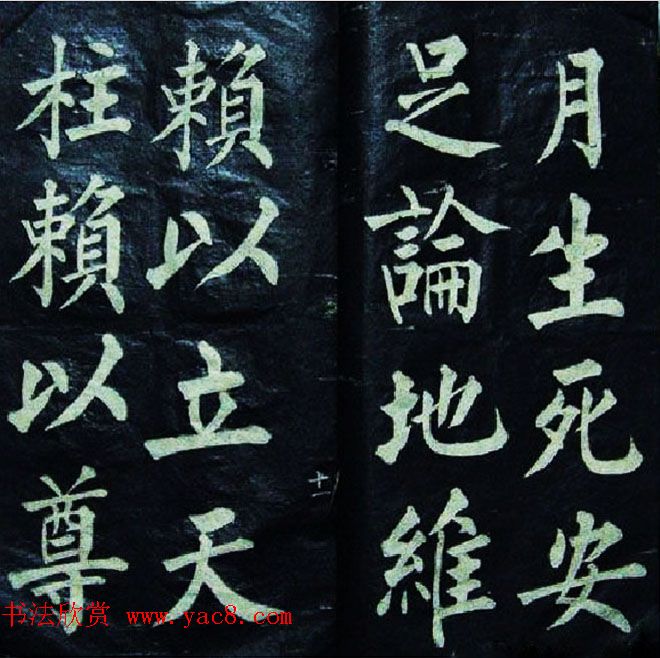 月生死安
足論地維
賴以立天
柱賴以尊
十二
书法欣赏 www.yac8.com